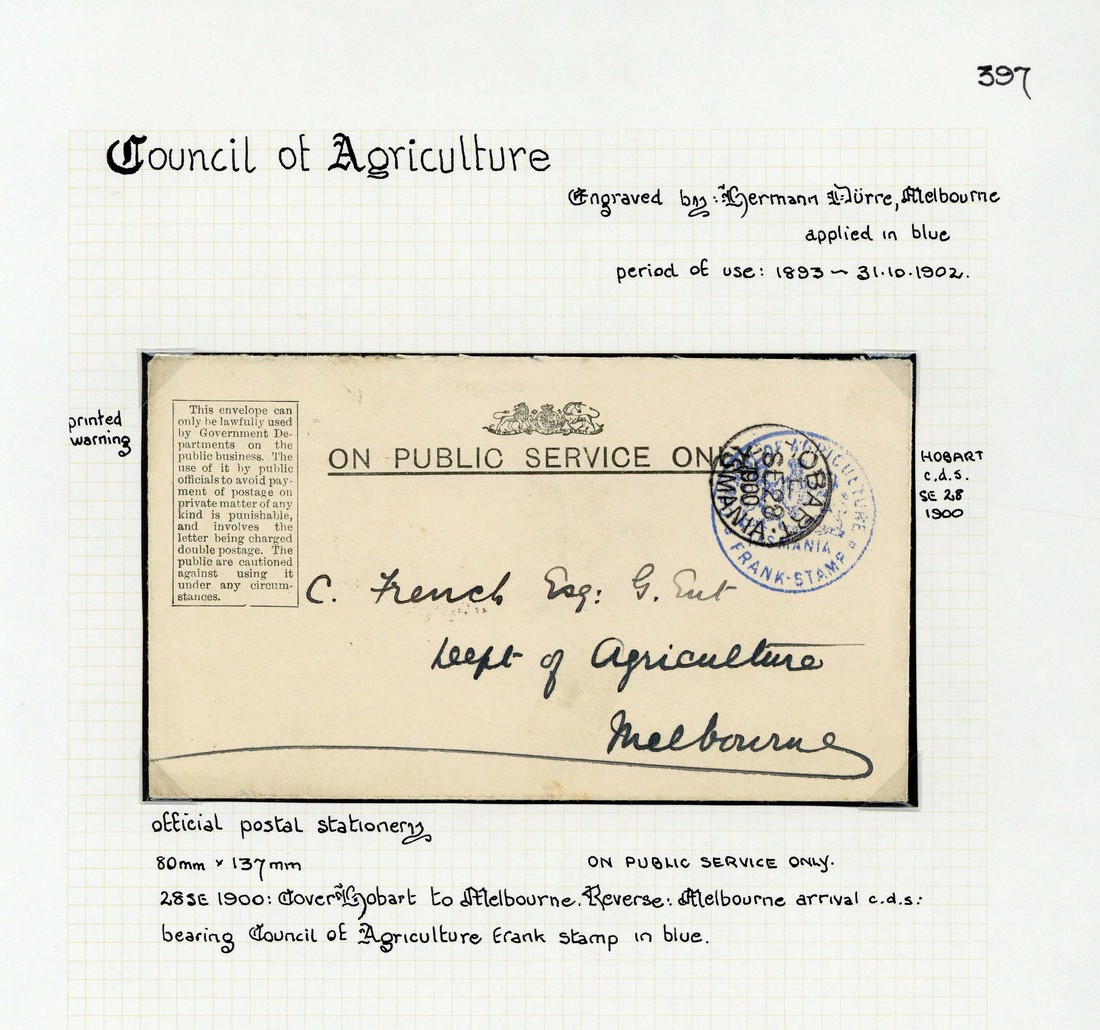 397
Council of Agriculture
Engraved by: Hermann Dürre, Melbourne
applied in blue
period of use: 1893 – 31.10.1902.
printed
warning
This envelope can
only be lawfully used
by Government De-
partments on the
public business. The
use of it by public
officials to avoid pay-
ment of postage on
private matter of any
kind is punishable,
and involves the
letter being charged
double postage. The
public are cautioned
against using it
under any circum-
stances.
ON PUBLIC SERVICE ONLY
HOBART
SE 28
1900
TASMANIA
OF AGRICULTURE
TASMANIA
FRANK-STAMP
HOBART
c.d.s.
SE 28
1900
C. French Esq: G. Ent
Dept of Agriculture
Melbourne
official postal stationery
80mm x 137mm
ON PUBLIC SERVICE ONLY.
28 SE 1900: Cover Hobart to Melbourne. Reverse: Melbourne arrival c.d.s:
bearing Council of Agriculture frank stamp in blue.